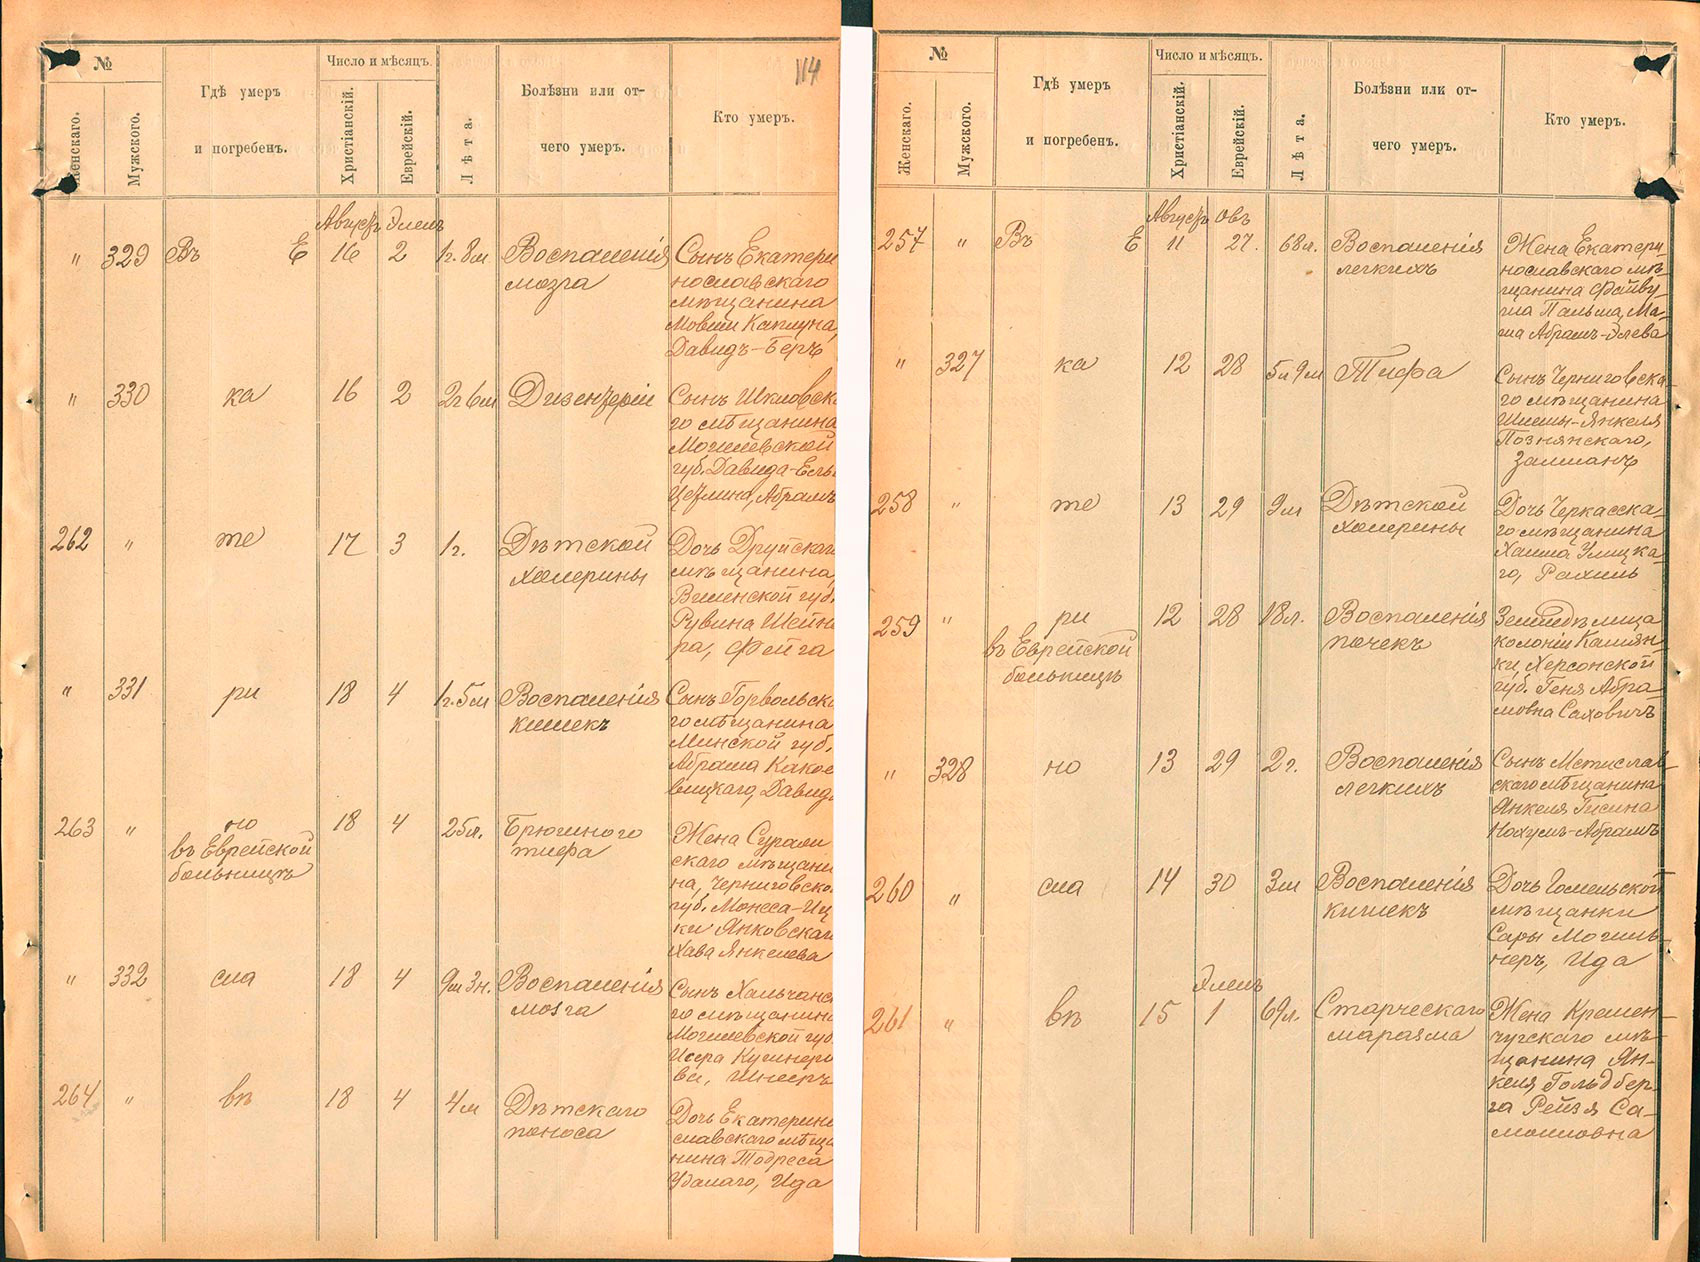 114
№
Число и мѣсяцъ.
Гдѣ умеръ
и погребенъ.
Женскаго.
Мужского.
Христіанскій.
Еврейскій.
Лѣта.
Болѣзни или от-
чего умеръ.
Кто умеръ.
Августъ Элелъ
" 329 Въ Е 16 2 1г. 8м Воспаленія
мозга
Сынъ Екатери
нославскаго
мѣщанина
Мовши Каплуна,
Давидъ-Беръ
" 330 ка 16 2 2г 6м Дизентеріи
Сынъ Шкловск
го мѣщанина
Могилевской
губ. Давида-Ель
Цезлина, Абрамъ
262 " те 17 3 1г. Дѣтской
холерины
Дочь Друйскаг
мѣщанина,
Виленской губ.
Рувина Шейн
ра, Фейга
" 331 ри 18 4 1г. 5м Воспаленія
кишекъ
Сынъ Горвольск
го мѣщанина
Минской губ.
Абрама Како
вицкаго, Давид
263 " но
въ Еврейской
больницѣ
18 4 25л. Брюшного
тифа
Жена Сурали
скаго мѣщани
на, Черниговско
губ. Монеса-Иц
ки Янковскаг
Хава Янкелева
" 332 сла 18 4 9м 3н. Воспаленія
мозга
Сынъ Хальчанс
го мѣщанин
Могилевской губ
ва, Шнееръ
264 " вѣ 18 4 4м Дѣтскаго
поноса
Дочь Екатерино
славскаго мѣща
нина Тодреса
Удалаго, Ида
№
Число и мѣсяцъ.
Гдѣ умеръ
и погребенъ.
Женскаго.
Мужского.
Христіанскій.
Еврейскій.
Лѣта.
Болѣзни или от-
чего умеръ.
Кто умеръ.
Августъ Овъ
257 " Въ Е 11 27. 68л. Воспаленія
легкихъ
Жена Екатери-
нославскаго мѣ-
щанина Файву-
ша Пальма, Ма-
ша Абрамъ-Элева
" 327 ка 12 28 5л 9м Тифа
Сынъ Черниговска-
го мѣщанина
Шлемы-Янкеля
Познянскаго,
Залманъ
258 " те 13 29 9м Дѣтской
холерины
Дочь Черкасска-
го мѣщанина
Хаима Улицка-
го, Рахиль
259 " ри
въ Еврейской
больницѣ
12 28 18л. Воспаленія
почекъ
Земледѣлица
колоніи Камян-
ки, Херсонской
губ. Геня Абра-
мовна Саховичъ
" 328 но 13 29 2г. Воспаленія
легкихъ
Сынъ Мстислав-
скаго мѣщанина
Янкеля Гисина
Нохумъ-Абрамъ
260 " сла 14 30 3м Воспаленія
кишекъ
Дочь Гомельской
мѣщанки
Сары Могиль-
неръ, Ида
Элелъ
261 " вѣ 15 1 69л. Старческаго
маразма
Жена Кремен-
чугскаго мѣ-
щанина Ян-
келя Гольдбер-
га Рейзя Са-
мойловна